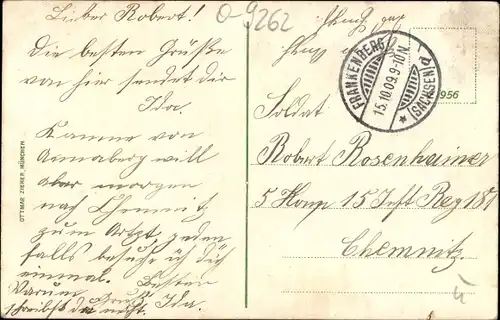 Lieber Robert!
Die besten Grüße
von hier sendet dir
Ida.
Komme von
Annaberg will
aber morgen
nach Chemnitz
zum Arzt jeden
falls besuche ich dich
einmal. Besten
Warum Gruß Ida.
schreibst du nicht.
OTTMAR ZIEHER, MÜNCHEN
O-9262
FRANKENBERG
15.10.09.9-10N.
* (SACHSEN) d
956
Soldat
Robert Rosenhamer
5 Komp 15 Inft Reg 181
Chemnitz.